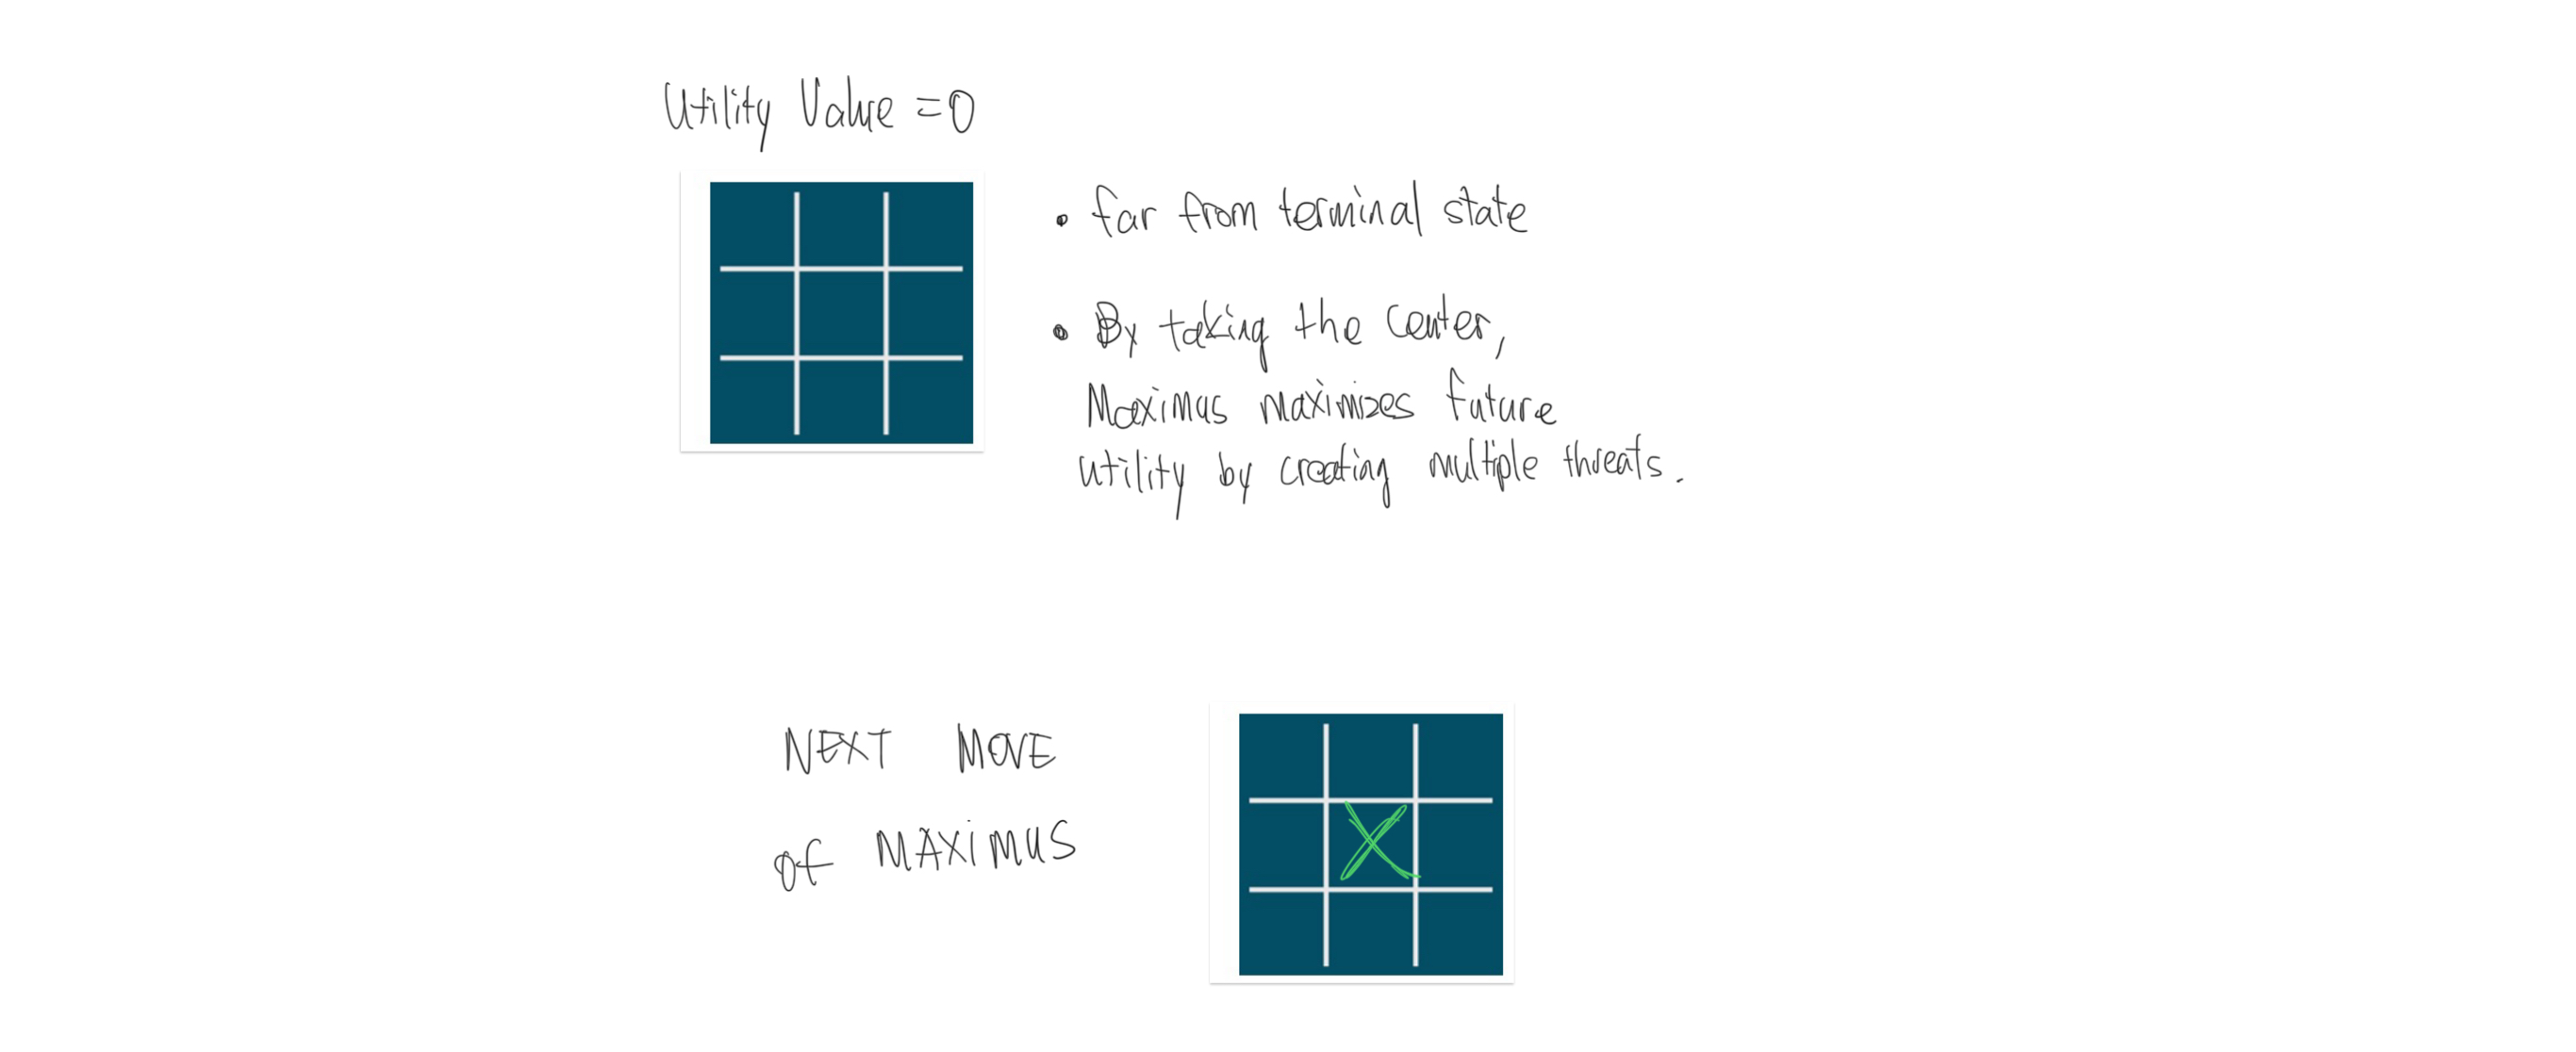 Utility Value = 0
• far from terminal state
• By taking the center,
Maximus maximizes future
utility by creating multiple threats.
NEXT MOVE
of MAXIMUS
X